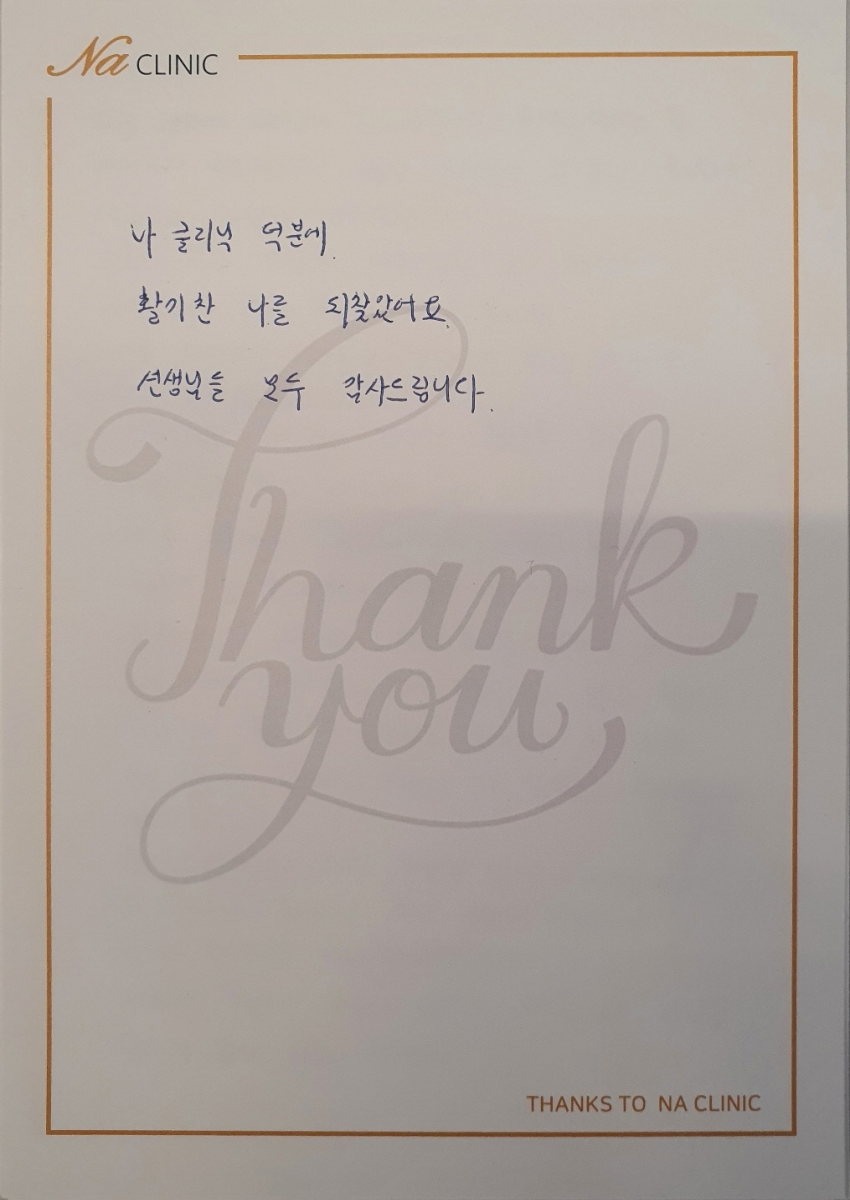 Na CLINIC
나 클리닉 덕분에.
활기찬 나를 되찾았어요.
선생님들 모두 감사드립니다.
Thank
you
THANKS TO NA CLINIC